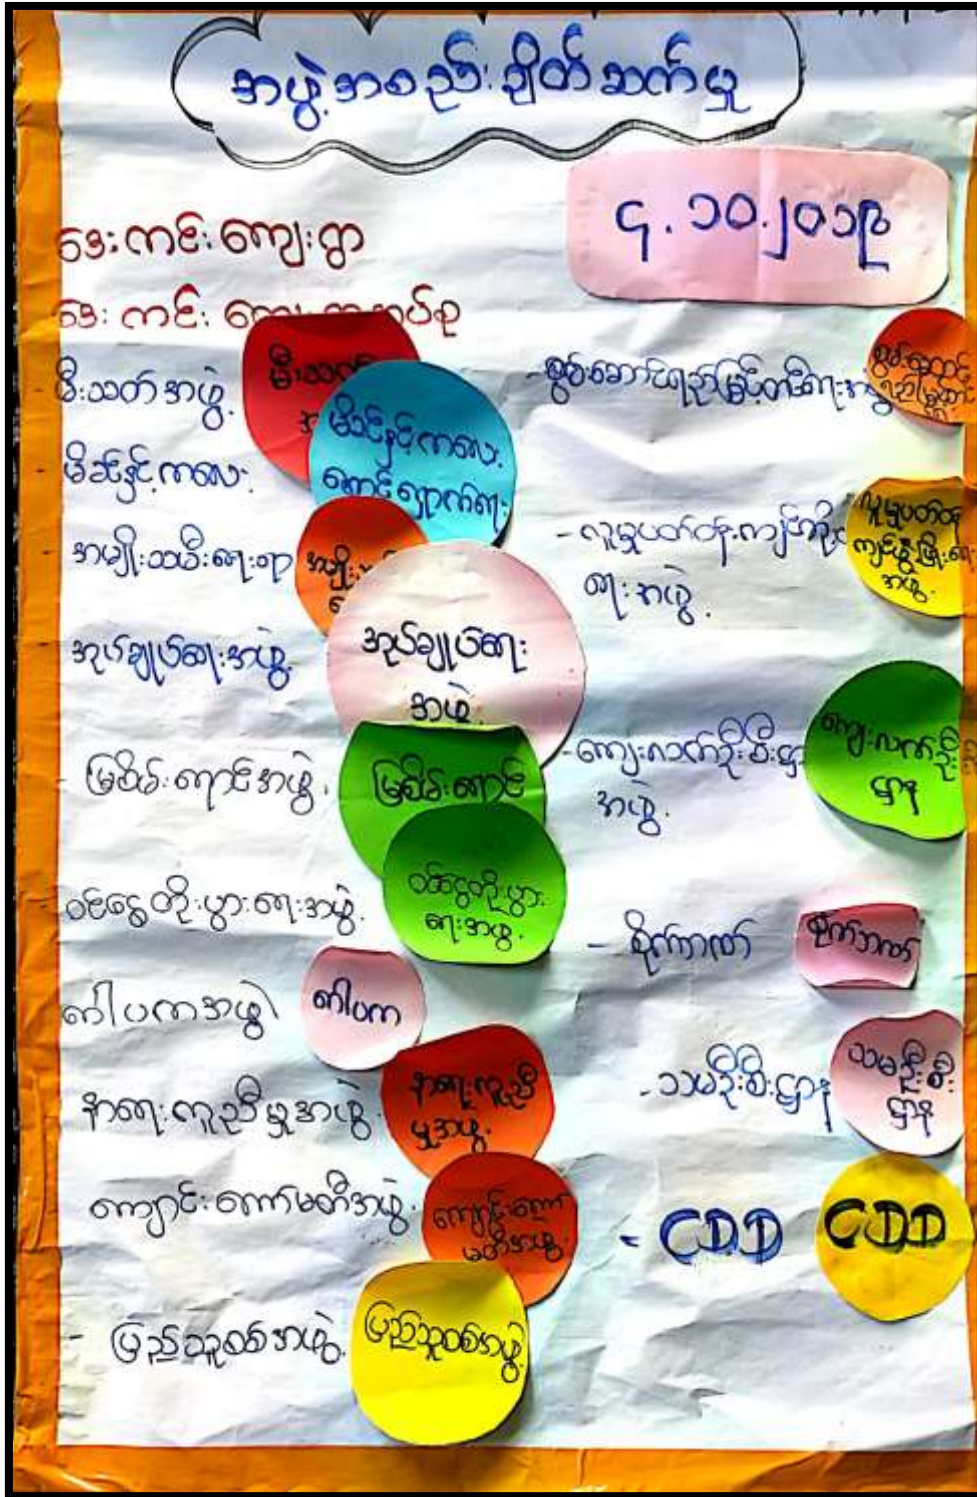 အဖွဲ့အစည်းချိတ်ဆက်မှု
၄.၁၀.၂၀၁၉
ဒေးကင်းကျေးရွာ
ဒေးကင်း
မီးသတ်အဖွဲ့
မီးသတ်
မိခင်နှင့်ကလေး
မိခင်နှင့်ကလေး
စောင့်ရှောက်ရေး
အမျိုးသမီးရေးရာ
အုပ်ချုပ်ရေးအဖွဲ့
အုပ်ချုပ်ရေး
အဖွဲ့
- မြစိမ်းရောင်အဖွဲ့
မြစိမ်းရောင်
ဝင်ငွေတိုးပွားရေးအဖွဲ့
ဝင်ငွေတိုးပွား
ရေးအဖွဲ့
ကါပကအဖွဲ့
ကါပက
နာရေးကူညီမှုအဖွဲ့
နာရေးကူညီ
မှုအဖွဲ့
ကျောင်းကော်မတီအဖွဲ့
ကျောင်းကော်
မတီအဖွဲ့
- ပြည်သူ့စစ်အဖွဲ့
ပြည်သူ့စစ်အဖွဲ့
- စွမ်းဆောင်ရည်မြှင့်တင်ရေး
စွမ်းဆောင်
- လူမှုပတ်ဝန်းကျင်
ရေးအဖွဲ့
လူမှုပတ်ဝန်း
ကျင်ဖွံ့ဖြိုးရေး
အဖွဲ့
- ကျေးလက်ဦးစီးဌာန
အဖွဲ့
ကျေးလက်ဦး
ဌာန
- စိုက်ဘဏ်
စိုက်ဘဏ်
- သမဦးစီးဌာန
သမဦးစီး
ဌာန
- CDD
CDD